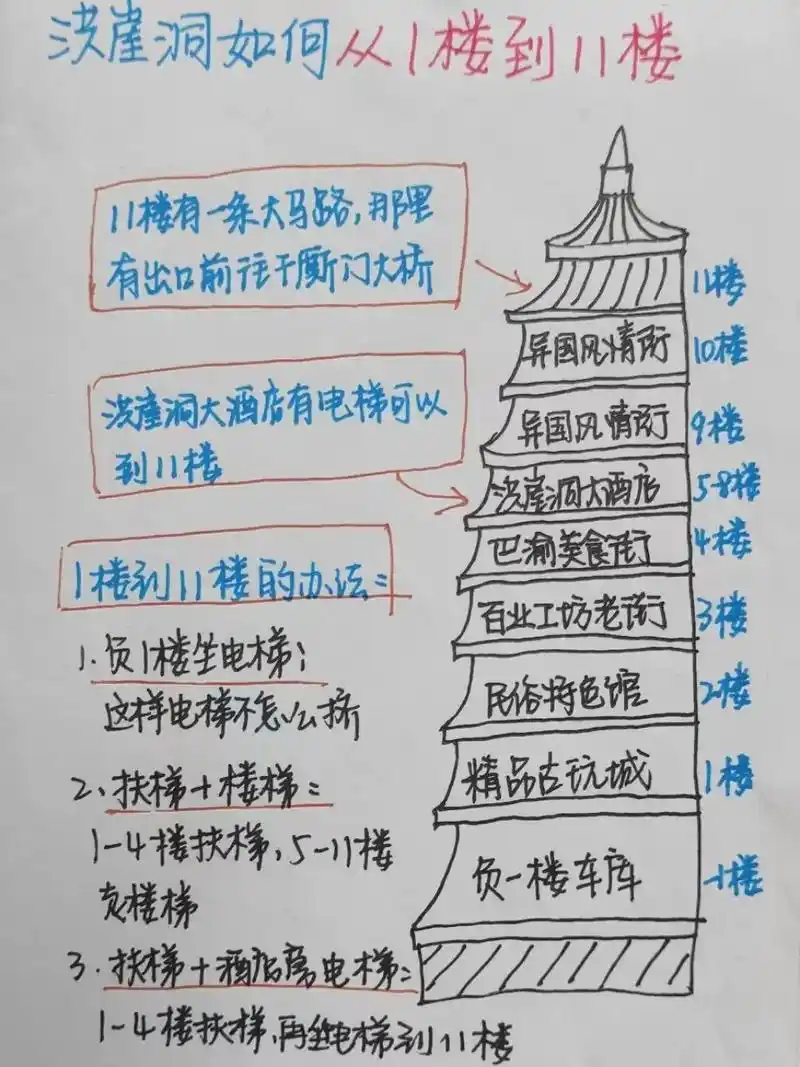 洪崖洞如何从1楼到11楼
11楼有一条大马路,那里
有出口前往千厮门大桥
11楼
异国风情街
10楼
异国风情街
9楼
洪崖洞大酒店有电梯可以
到11楼
洪崖洞大酒店
5-8楼
巴渝美食街
4楼
百业工坊老街
3楼
民俗特色馆
2楼
精品古玩城
1楼
负一楼车库
-1楼
1楼到11楼的办法:
1.负1楼坐电梯;
这样电梯不怎么挤
2、扶梯+楼梯:
1-4楼扶梯,5-11楼
爬楼梯
3.扶梯+酒店房电梯:
1-4楼扶梯,再坐电梯到11楼